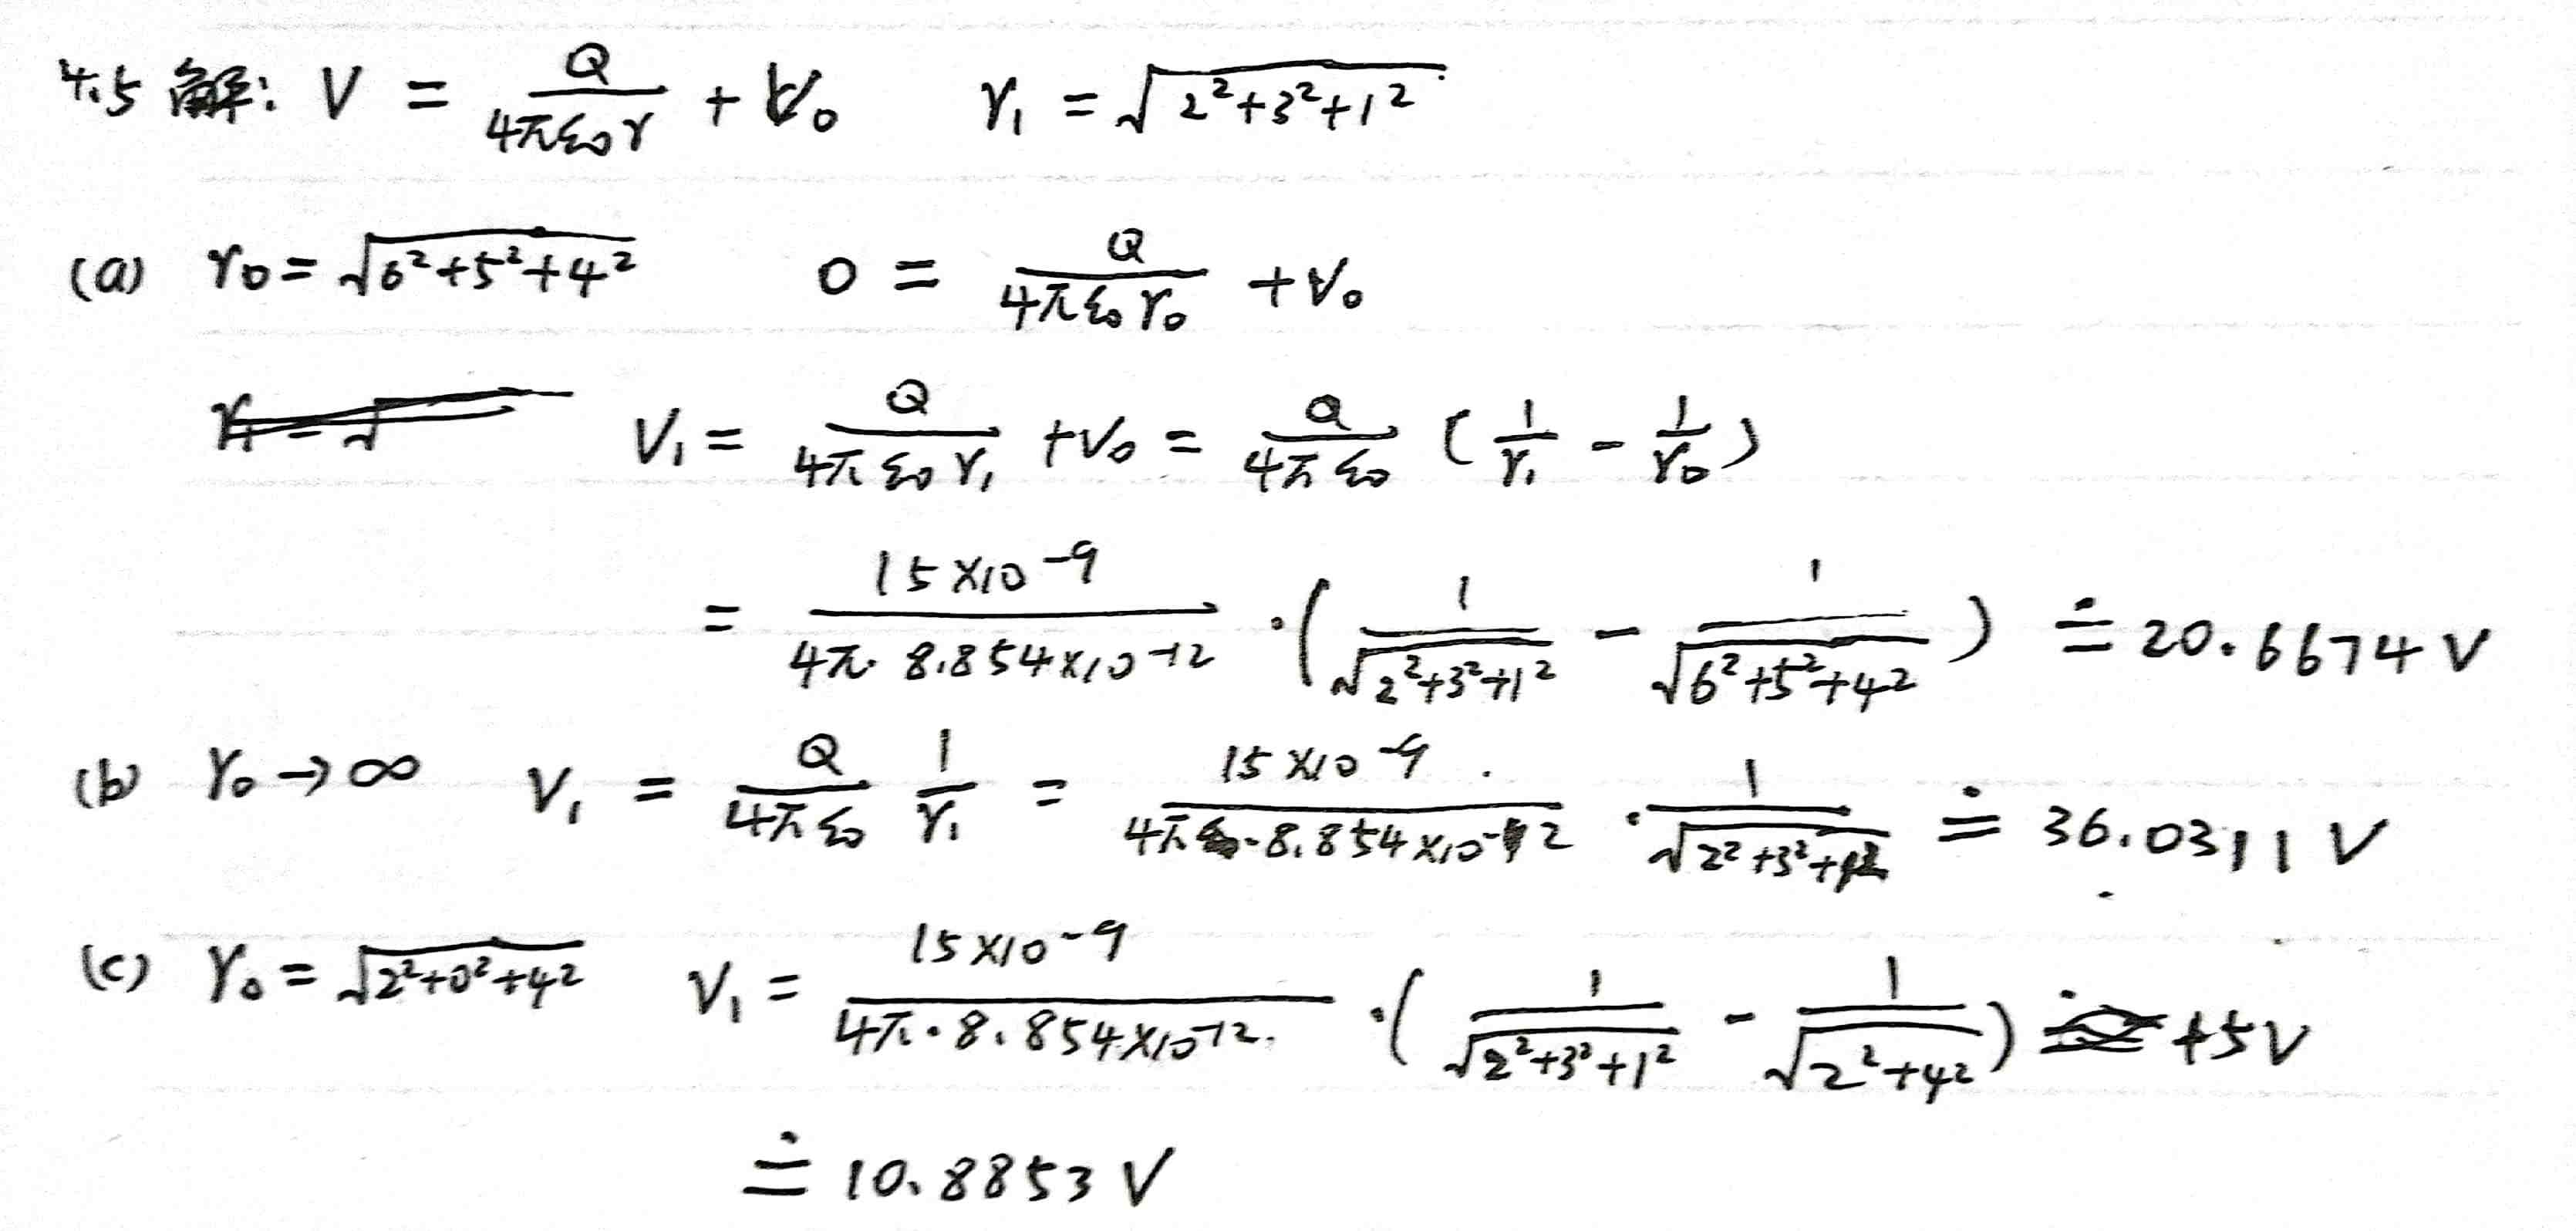 4.5 解: V = Q/(4πε₀r) + V₀ r₁ = √(2²+3²+1²)
(a) r₀ = √(6²+5²+4²) 0 = Q/(4πε₀r₀) + V₀
V₁ = Q/(4πε₀r₁) + V₀ = Q/(4πε₀) (1/r₁ - 1/r₀)
= 15×10⁻⁹/(4π· 8.854×10⁻¹²) · (1/√(2²+3²+1²) - 1/√(6²+5²+4²)) ≐ 20.6674 V
(b) r₀ → ∞ V₁ = Q/(4πε₀) 1/r₁ = 15×10⁻⁹/(4π·8.854×10⁻¹²) · 1/√(2²+3²+1²) ≐ 36.0311 V
(c) r₀ = √(2²+0²+4²) V₁ = 15×10⁻⁹/(4π·8.854×10⁻¹²) · (1/√(2²+3²+1²) - 1/√(2²+4²)) +5V
≐ 10.8853 V